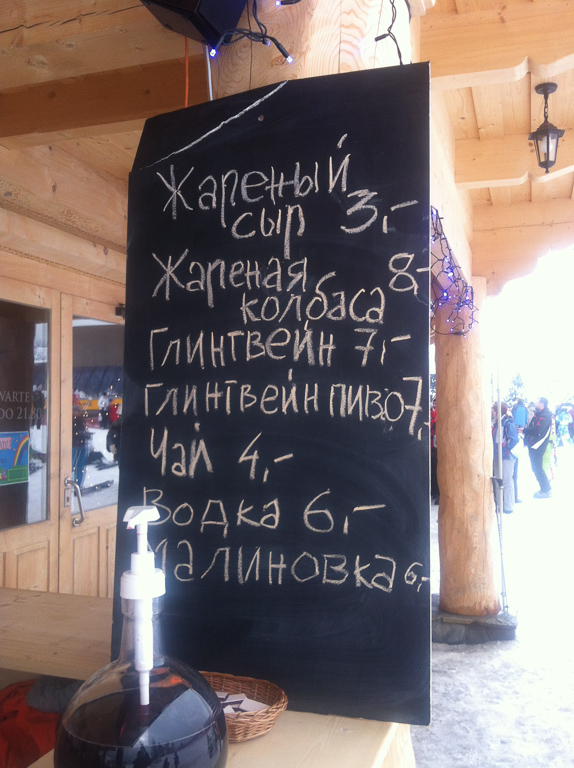 Жареный
сыр 3,-
Жареная 8,-
колбаса
Глинтвейн 7,-
Глинтвейн пиво 7,-
Чай 4,-
Водка 6,-
Малиновка 6,-